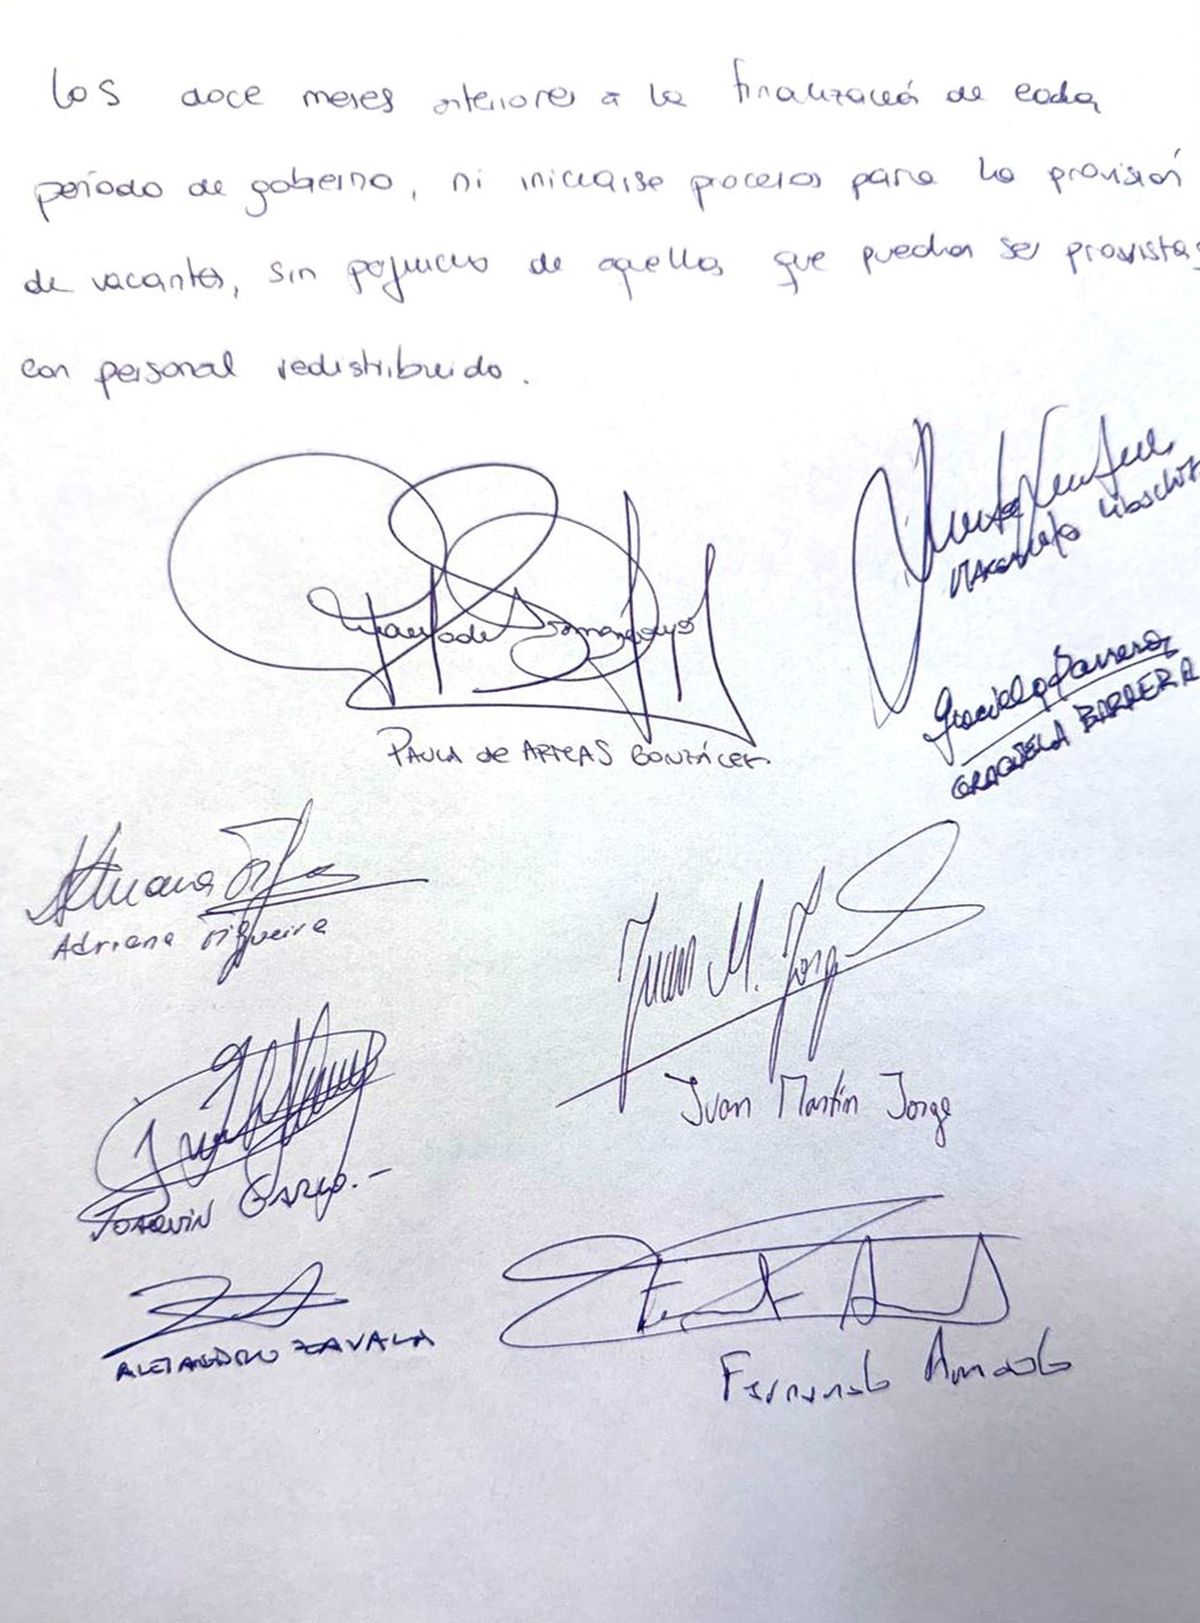 los doce meses anteriores a la finalización de cada
período de gobierno, ni iniciarse procesos para la provisión
de vacantes, sin perjuicio de aquellas que puedan ser provistas
con personal redistribuido.
PAULA de ARMAS GONZÁLEZ
Graciela Barrera
GRACIELA BARRERA
Adriana
Juan M. Jorge
Juan Martín Jorge
JOAQUIN GARZO.-
ALEJANDRO ZAVALA
Fernando Amado